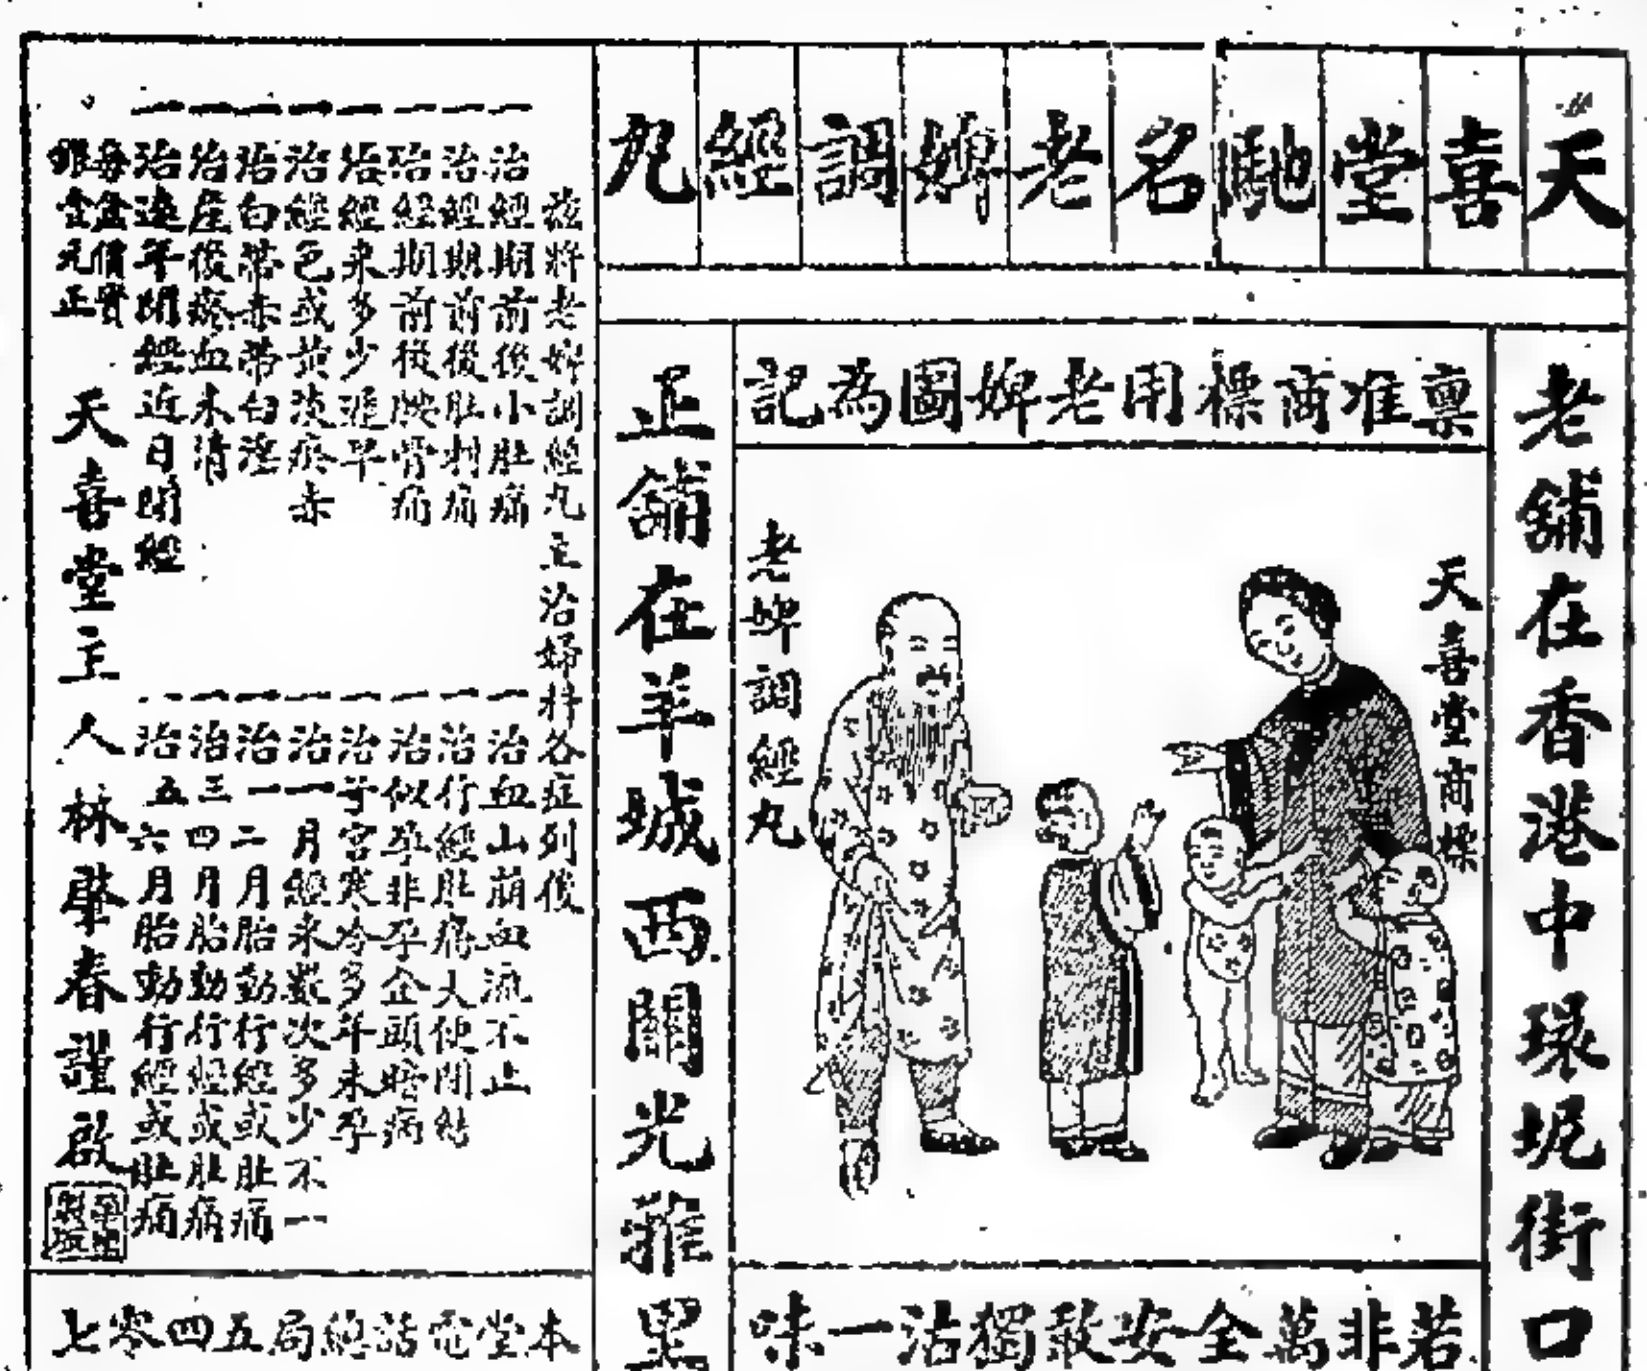 天喜堂馳名老婢調經丸
老舖在香港中環坭街口
稟准商標用老婢圖為記
天喜堂商標
老婢調經丸
若非萬全安敢獨沽一味
正舖在羊城西關光雅里
茲將老婢調經丸主治婦科各症列後
一治經期前後小肚痛
一治經期前後肚刺痛
一治經期前後腰骨痛
一治經來多少遲早
一治經色或黃淡瘀赤
一治白帶赤帶白淫
一治產後瘀血未清
一治遠年閉經近日閉經
一治血山崩血流不止
一治行經肚痛大便閉結
一治似孕非孕企頭暗病
一治子宮寒冷多年未孕
一治一月經來數次多少不一
一治一二月胎動行經或肚痛
一治三四月胎動行經或肚痛
一治五六月胎動行經或肚痛
每盒價實
銀壹元正
天喜堂主人林肇春謹啟
本堂電話總局五四零七